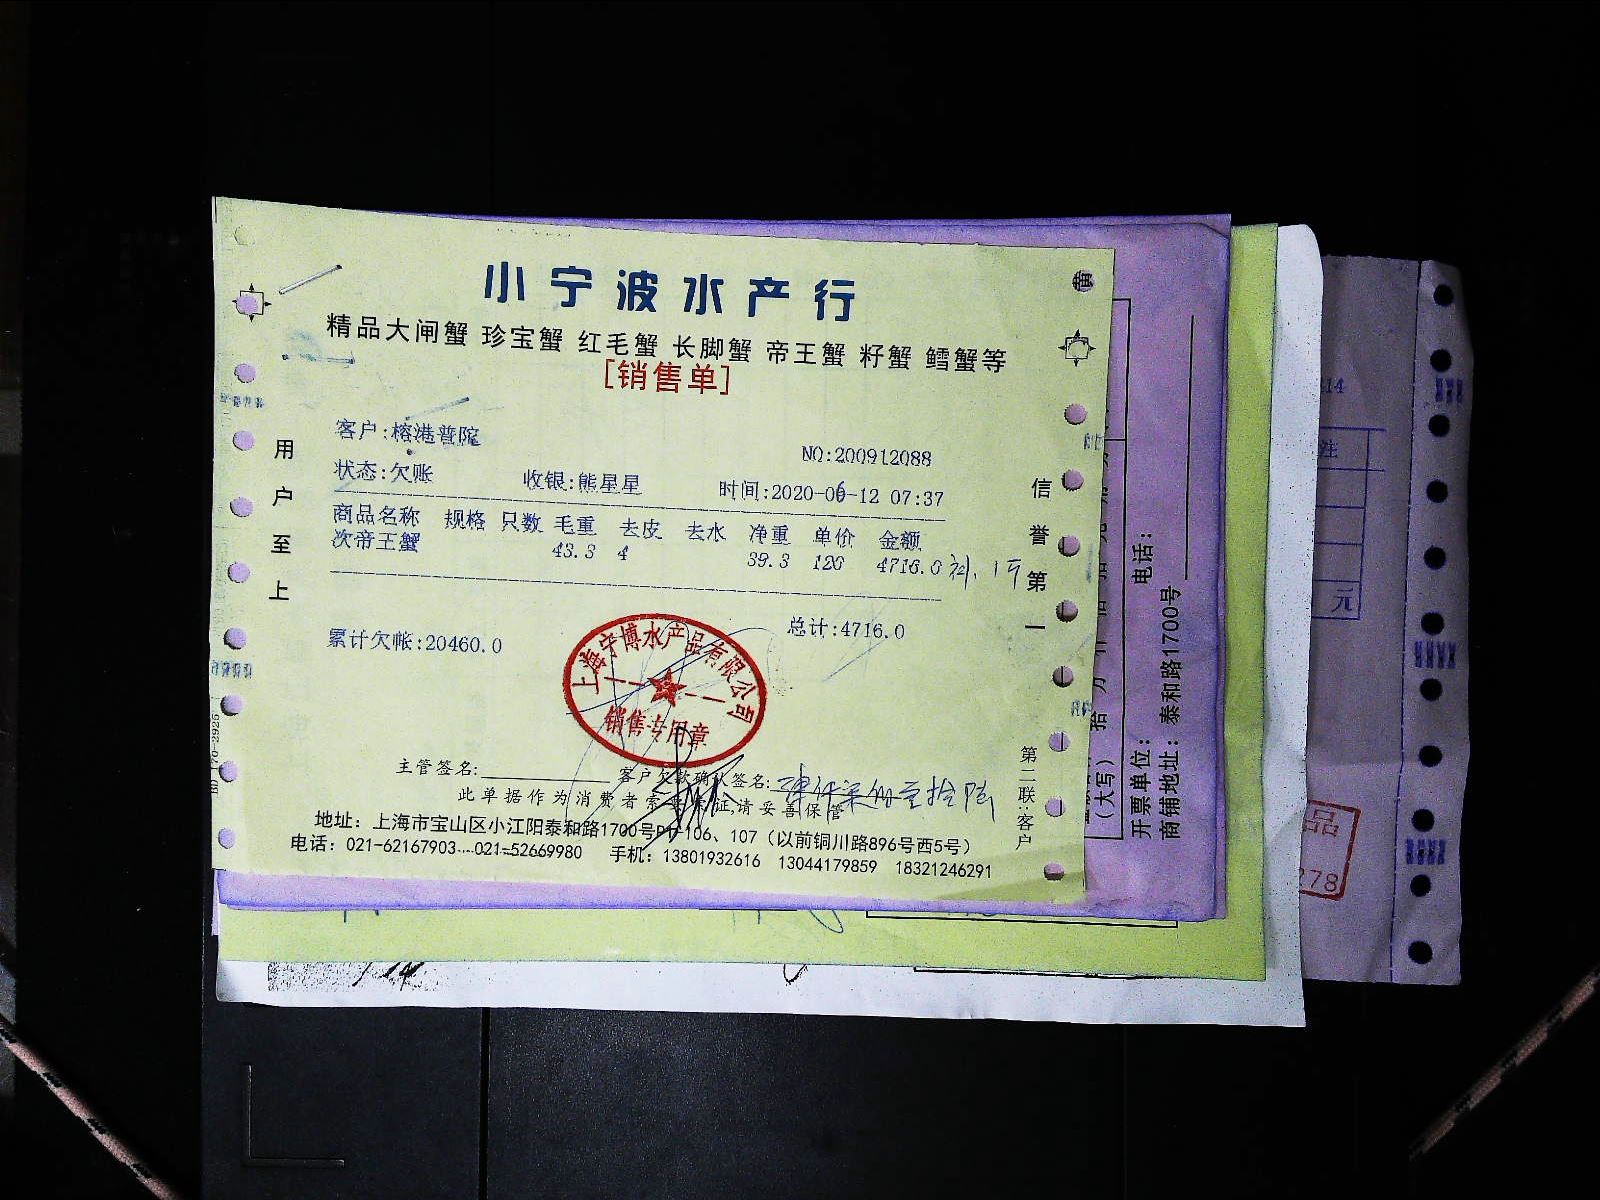 小宁波水产行
精品大闸蟹 珍宝蟹 红毛蟹 长脚蟹 帝王蟹 籽蟹 鳕蟹等
[销售单]
客户:榕港普陀
NO:200912088
状态:欠账 收银:熊星星 时间:2020-06-12 07:37
商品名称 规格 只数 毛重 去皮 去水 净重 单价 金额
次帝王蟹 43.3 4 39.3 120 4716.0
累计欠帐:20460.0 总计:4716.0
上海宁博水产品有限公司
销售专用章
主管签名: 客户欠款确认签名: 肆仟柒佰壹拾陆
此单据作为消费者索赔凭证,请妥善保管
地址：上海市宝山区小江阳泰和路1700号 106、107（以前铜川路896号西5号）
电话：021-62167903 021-52669980 手机：13801932616 13044179859 18321246291
用户至上
信誉第一
第二联:客户
电话：
开票单位：
商铺地址：泰和路1700号
(大写) 拾 万
注
元
品
278